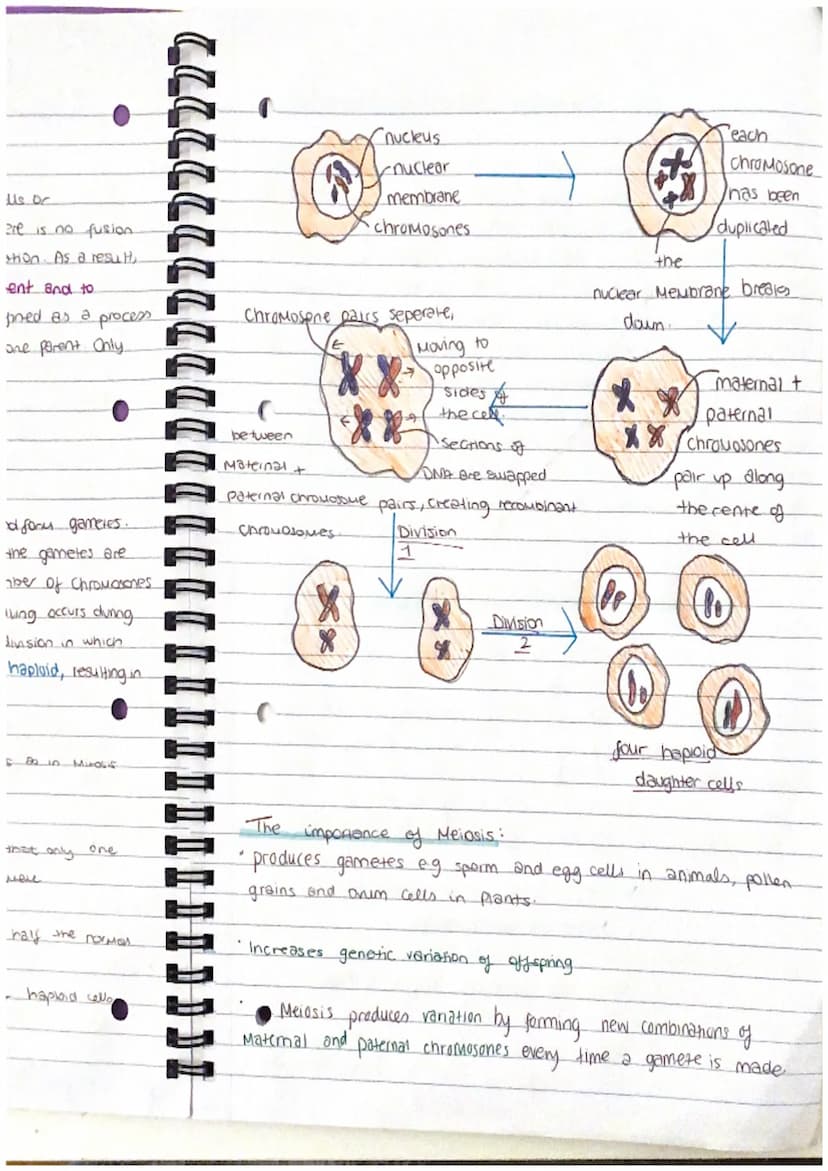 us or
ere is no fusion
tion. As a result,
ent and to
pned as a process
one parent only
d form gametes.
the gametes are
nber of chromosones
lung occurs during
division in which
haploid, resulting in
s as in Mitosis
that only one
half the normal
- haploid cells
nucleus
nuclear
membrane
chromosones
each
chromosone
has been
duplicated
the
nuclear membrane breaks
down.
maternal +
paternal
chromosones
pair up along
the centre of
the cell
chromosone pairs seperate,
moving to
opposite
sides of
the cell.
sections of
DNA are swapped
between
maternal +
paternal chromosome pairs, creating recombinant
chromosomes.
Division
1
Division
2
four haploid
daughter cells
The importance of Meiosis:
• produces gametes e.g sperm and egg cells in animals, pollen
grains and ovum cells in plants.
• Increases genetic variation of offspring
• Meiosis produces variation by forming new combinations of
maternal and paternal chromosones every time a gamete is made.